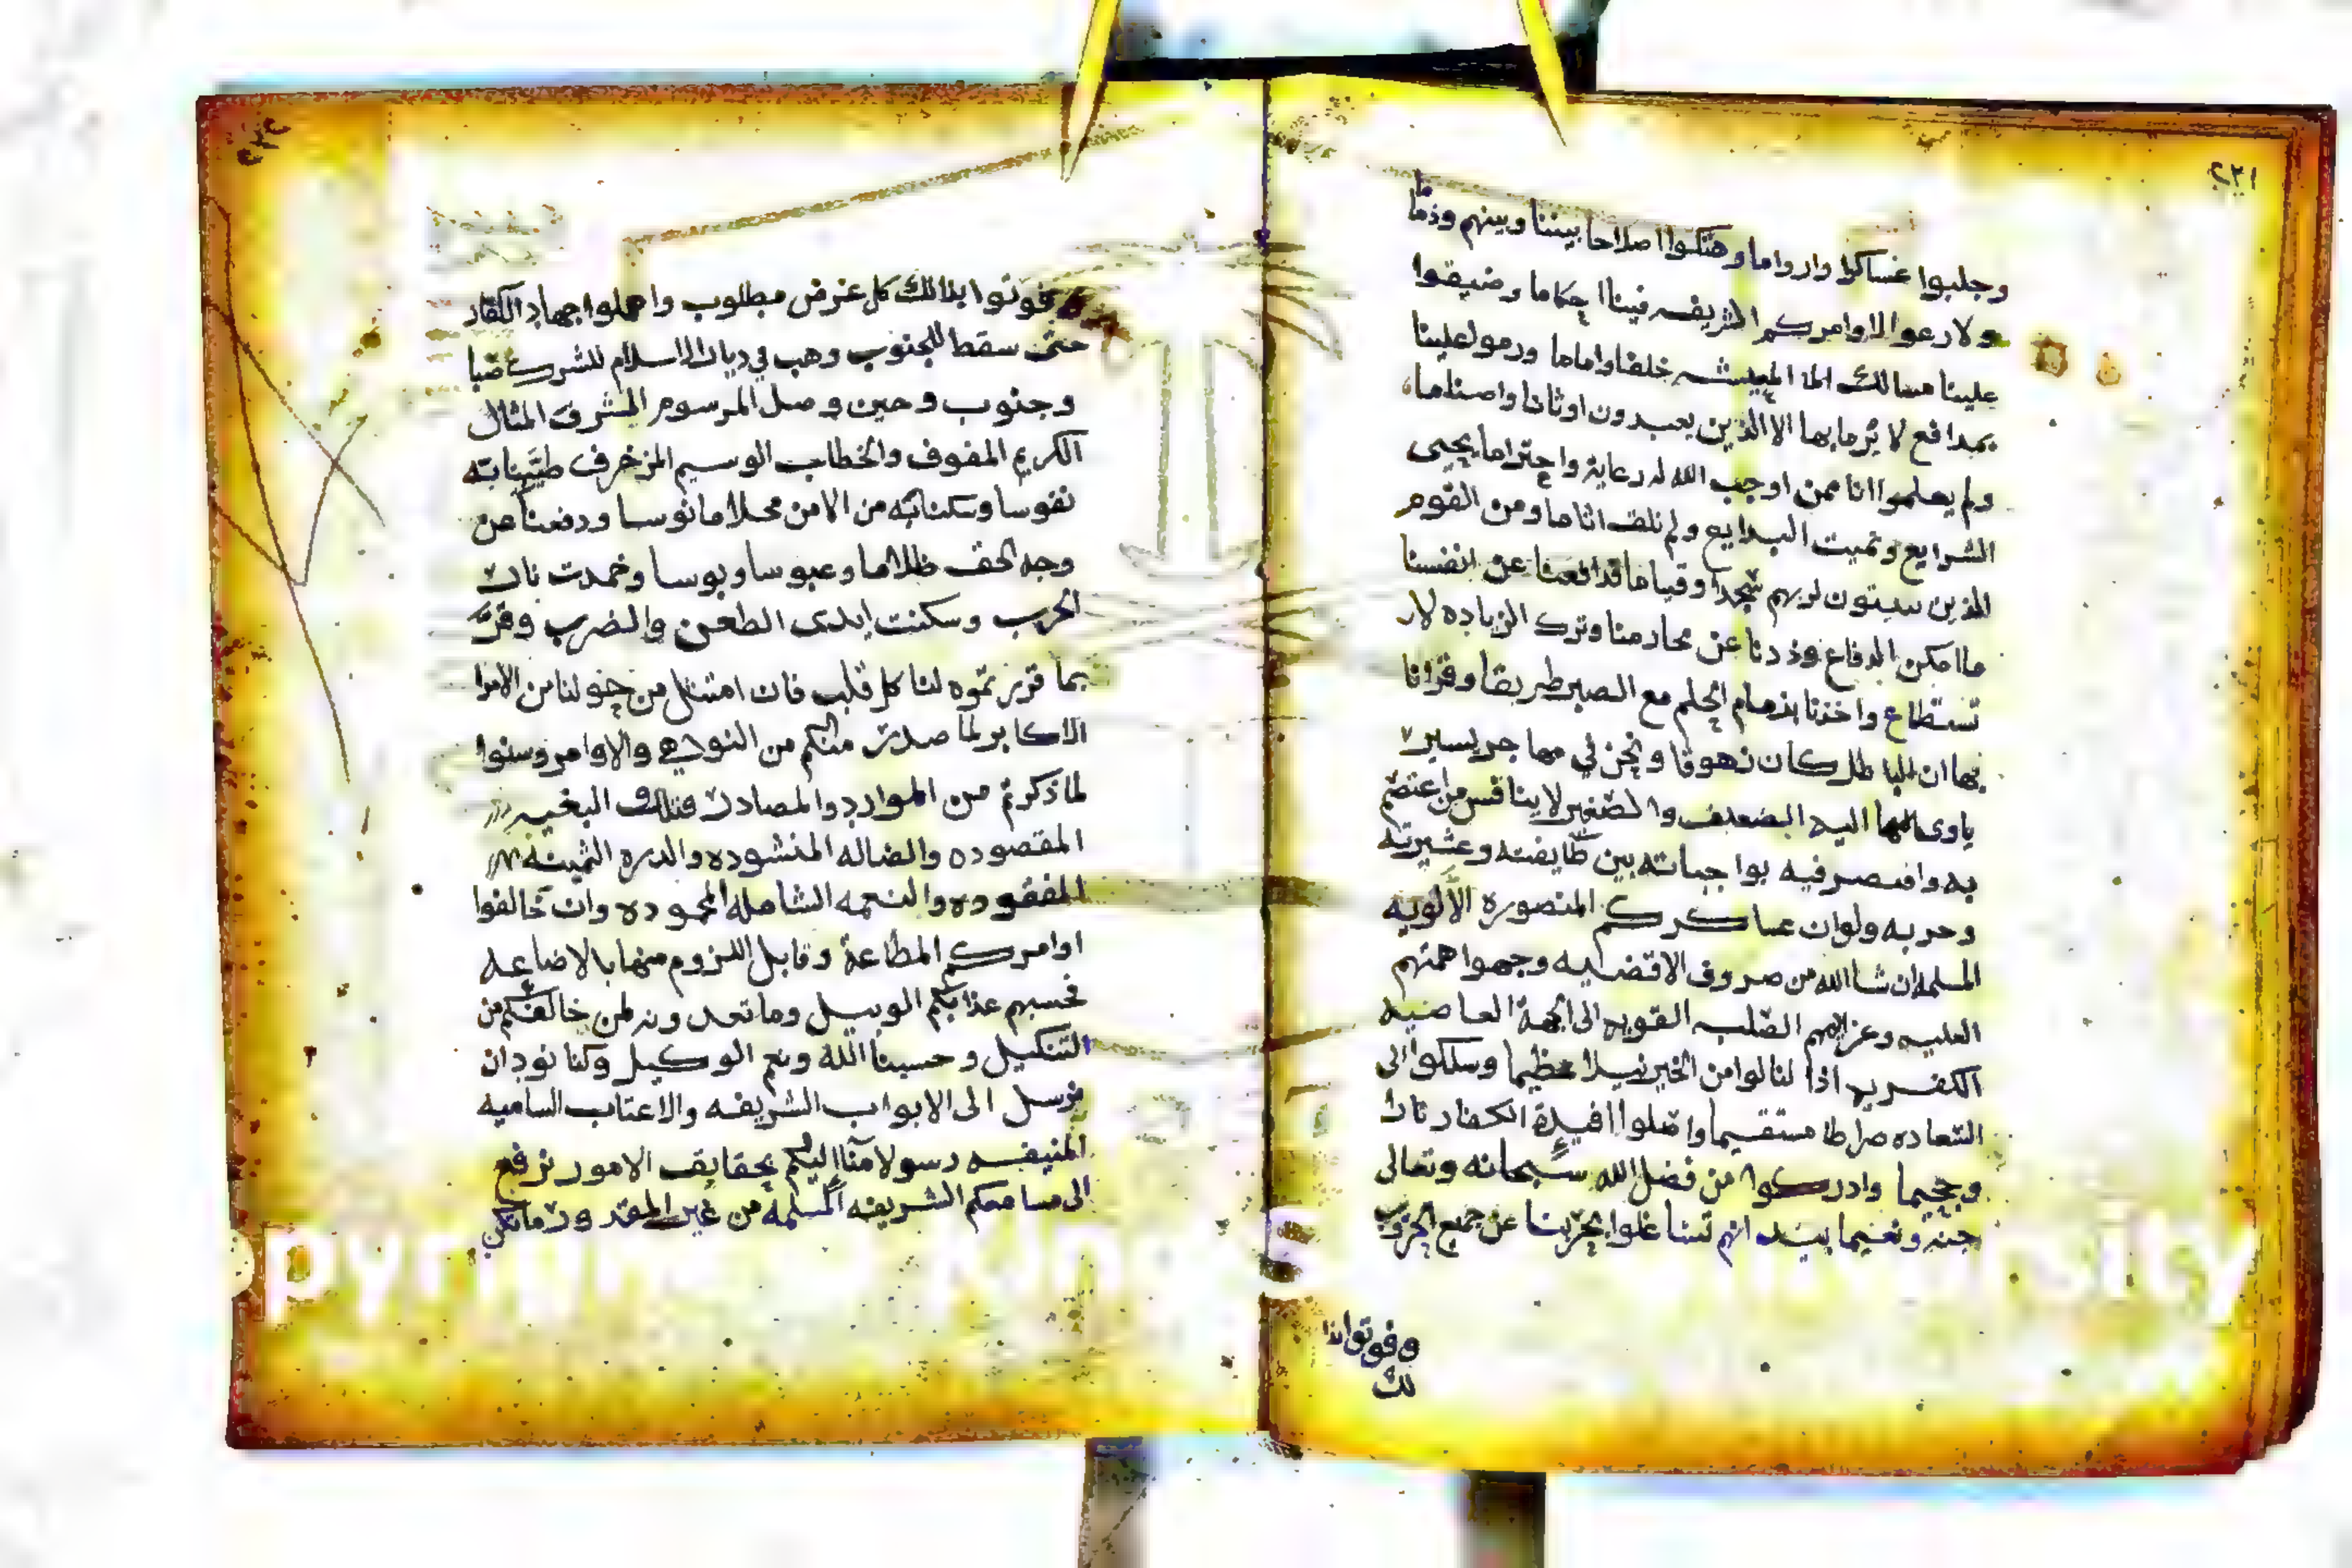 ٢٢١
وجلبوا عساكرا وارواما وهتكوا اصلاحا بيننا وبينهم وذماما
ولارعوا لاوامركم الشريفه فينا احكاما وضيقوا
علينا مسالك المعيشه خلفا واماما ورموا علينا
بمدافع لا يرما بها الا الذين يعبدون اوثانا واصناما
ولم يعلموا انا ممن اوجب الله له رعاية واحتراما يحيى
الشرايع وتميت البدايع ولم نلق اثاما ومن القوم
الذين يبيتون لربهم سجدا وقياما فدافعنا عن انفسنا
ما امكن الدفاع وذدنا عن محارمنا وترك الزياده لا
تستطاع واخذنا بزمام الحلم مع الصبر طريقا وقرانا
بها ان الباطل كان زهوقا ونحن في
ياوى اليه الضعيف والصغير لا ينافس من اعتصم
به واقتصر فيه بواجباته بين طايفته وعشيرته
وحربه ولو ان عساكركم المنصورة الألويه
المسلمه ان شا الله من صروف الاقضيه وجهوا هممهم
العليه وعزايمهم الصلبه القويه الى الجهة العاصيه
الكفريه اذا لنالوا من الخير نيلا عظيما وسلكوا الى
السعاده صراطا مستقيما واصلوا افيدة الكفار نارا
وجحيما وادركوا من فضل الله سبحانه وتعالى
جنه ونعيما بيد انهم تشاغلوا بحربنا عن جميع الحروب
وفوتوا بذا
لك
وفوتوا بذالك كل غرض مطلوب واهملوا جهاد الكفار
حتى سقط للجنوب وهب في ديار الاسلام للشرك صبا
وجنوب وحين وصل المرسوم المشرف المثال
الكريم المفوف والخطاب الوسيم المزخرف طيبنا به
نفوسا وسكنا به من الامن محلا مانوسا ودفعنا عن
وجه الحق ظلاما وعبوسا وبوسا وخمدت نار
الحرب وسكنت ايدى الطعن والضرب وقر
بما قررتموه لنا كل قلب فان امتثل من حولنا من الامرا
الاكابر لما صدر منكم من النواهي والاوامر وسنوا
لما ذكرتم من الموارد والمصادر فتلك البغيه
المقصوده والضاله المنشوده والدره الثمينه
المفقوده والنعمه الشامله المحموده وان خالفوا
اوامركم المطاعة وقابل اللزوم منها بالاضاعه
فحسبهم عذابكم الوبيل وما تعدونه لمن خالفكم من
التنكيل وحسبنا الله ونعم الوكيل وكنا نود ان
نرسل الى الابواب الشريفه والاعتاب الساميه
المنيفه رسولا منا اليكم بحقايق الامور نرفع
الى مسامعكم الشريفه المسلمه من غير المقدور ما